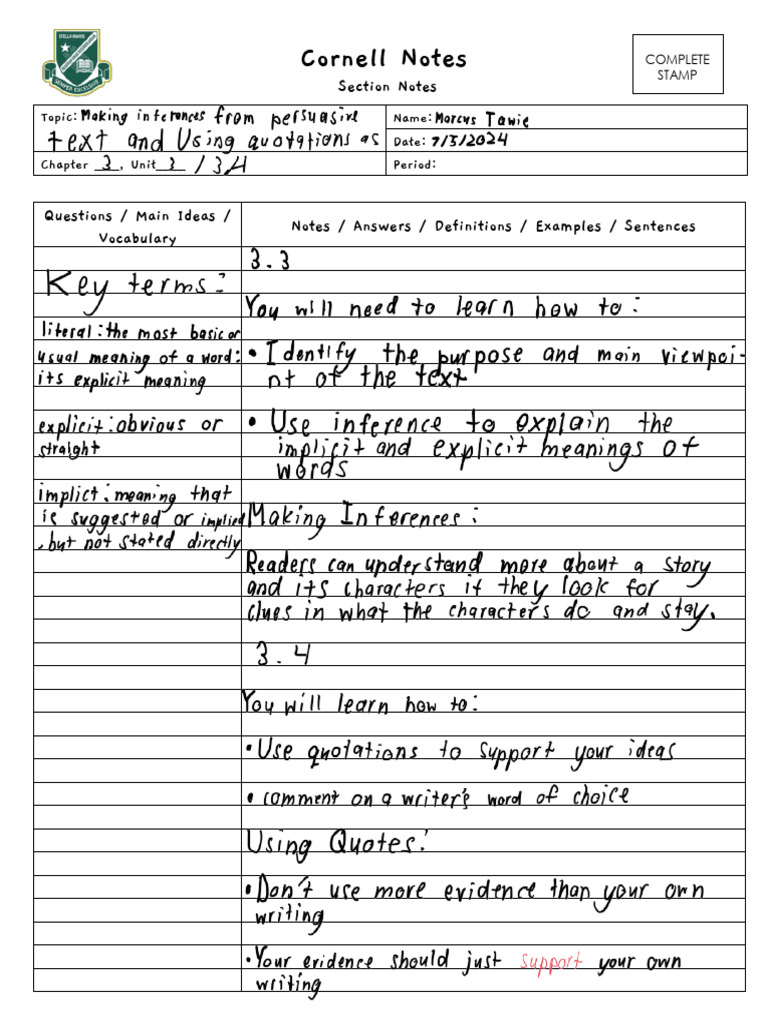 STELLA MARIS
SEMPER EXCELSIUS
Cornell Notes
Section Notes
COMPLETE
STAMP
Topic: Making inferences from persuasive
text and Using quotations as
Chapter 3, Unit 3 / 3.4
Name: Marcus Tawie
Date: 7/3/2024
Period:
Questions / Main Ideas /
Vocabulary
Notes / Answers / Definitions / Examples / Sentences
Key terms:
literal: the most basic or
usual meaning of a word:
its explicit meaning
explicit: obvious or
straight
implict: meaning that
is suggested or implied
, but not stated directly
3.3
You will need to learn how to:
• Identify the purpose and main viewpoi-
nt of the text
• Use inference to explain the
implicit and explicit meanings of
words
Making Inferences:
Readers can understand more about a story
and its characters if they look for
clues in what the characters do and stay.
3.4
You will learn how to:
• Use quotations to support your ideas
• comment on a writer's word of choice
Using Quotes:
• Don't use more evidence than your own
writing
• Your evidence should just support your own
writing